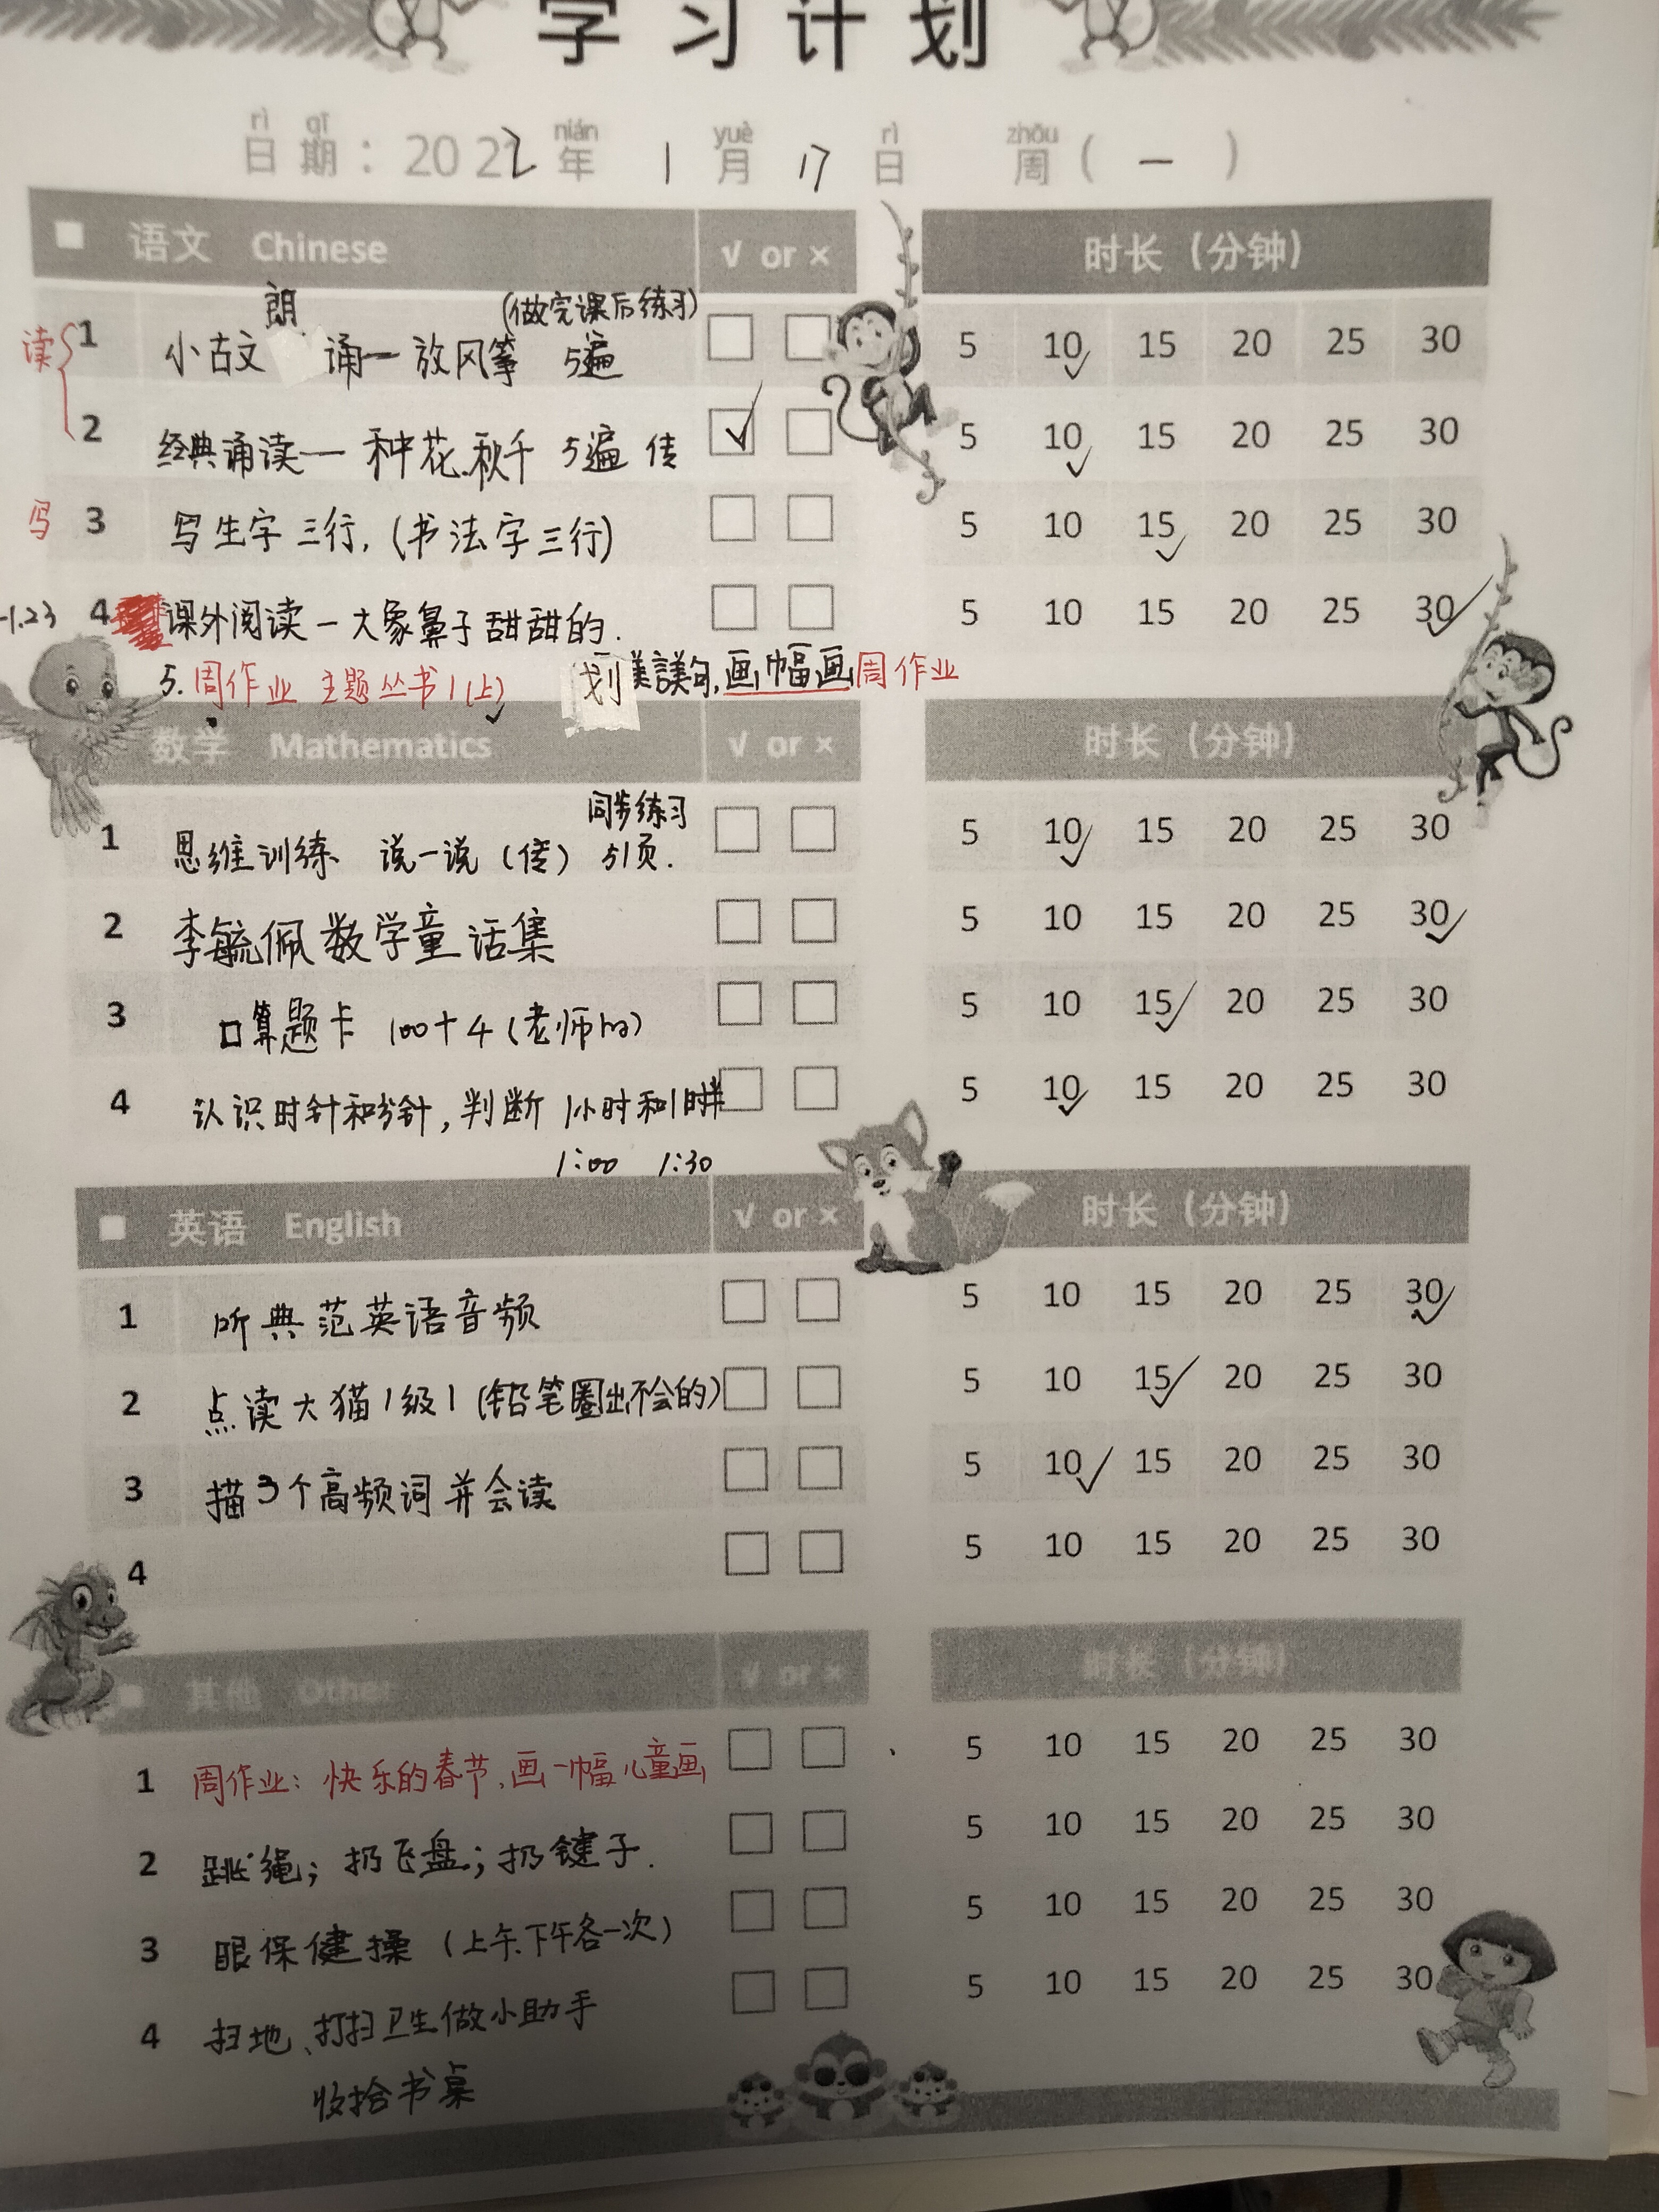 学习计划
rì qī nián yuè rì zhōu
日期：2022年 1月 17日 周（一）
语文 Chinese √ or × 时长（分钟）
朗 （做完课后练习）
读 1 小古文 诵一放风筝 5遍 5 10 15 20 25 30
2 经典诵读一种花、秋千 5遍 传 5 10 15 20 25 30
写 3 写生字三行,(书法字三行) 5 10 15 20 25 30
-1.23 4 课外阅读-大象鼻子甜甜的. 5 10 15 20 25 30
5. 周作业 主题丛书1(上) 划 美句,画幅画周作业
数学 Mathematics √ or × 时长（分钟）
同步练习
1 思维训练 说一说（传）51页. 5 10 15 20 25 30
2 李毓佩数学童话集 5 10 15 20 25 30
3 口算题卡 100+4(老师的) 5 10 15 20 25 30
4 认识时针和分针,判断1小时和1时半 5 10 15 20 25 30
1:00 1:30
英语 English √ or × 时长（分钟）
1 听典范英语音频 5 10 15 20 25 30
2 点读大猫1级1(铅笔圈出不会的) 5 10 15 20 25 30
3 描3个高频词并会读 5 10 15 20 25 30
4 5 10 15 20 25 30
其他 Other √ or × 时长（分钟）
1 周作业：快乐的春节,画一幅儿童画 5 10 15 20 25 30
2 跳绳；扔飞盘；扔键子. 5 10 15 20 25 30
3 眼保健操（上午、下午各一次） 5 10 15 20 25 30
4 扫地、打扫卫生做小助手 5 10 15 20 25 30
收拾书桌